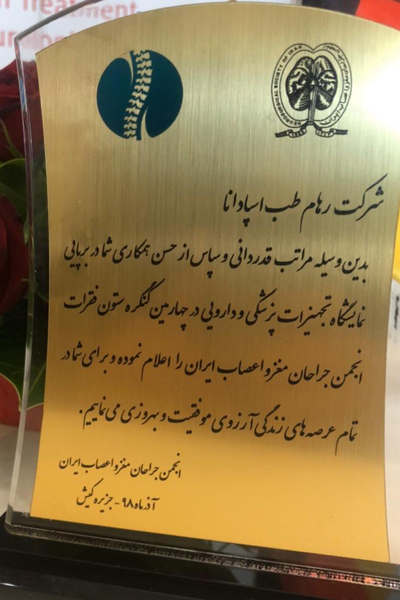 Treatment
شرکت رهام طب اسپادانا
بدین وسیله مراتب قدردانی و سپاس از حسن همکاری شما در برپایی
نمایشگاه تجهیزات پزشکی و دارویی در چهارمین کنگره ستون فقرات
انجمن جراحان مغز و اعصاب ایران را اعلام نموده و برای شما در
تمام عرصه های زندگی آرزوی موفقیت و بهروزی می نماییم.
انجمن جراحان مغز و اعصاب ایران
آذر ماه ۹۸ - جزیره کیش